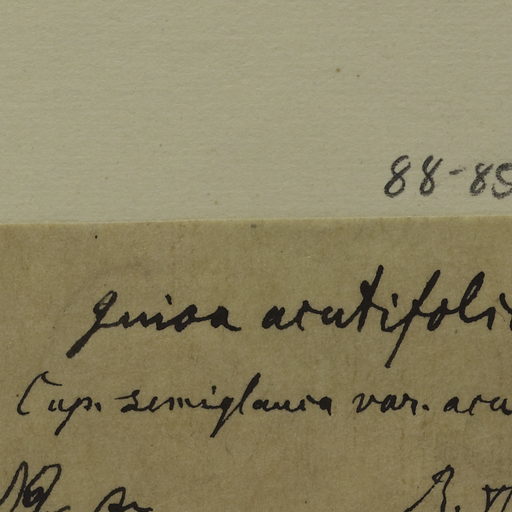 88-89
guioa acutifoli
Cup. semiglauca var. acu